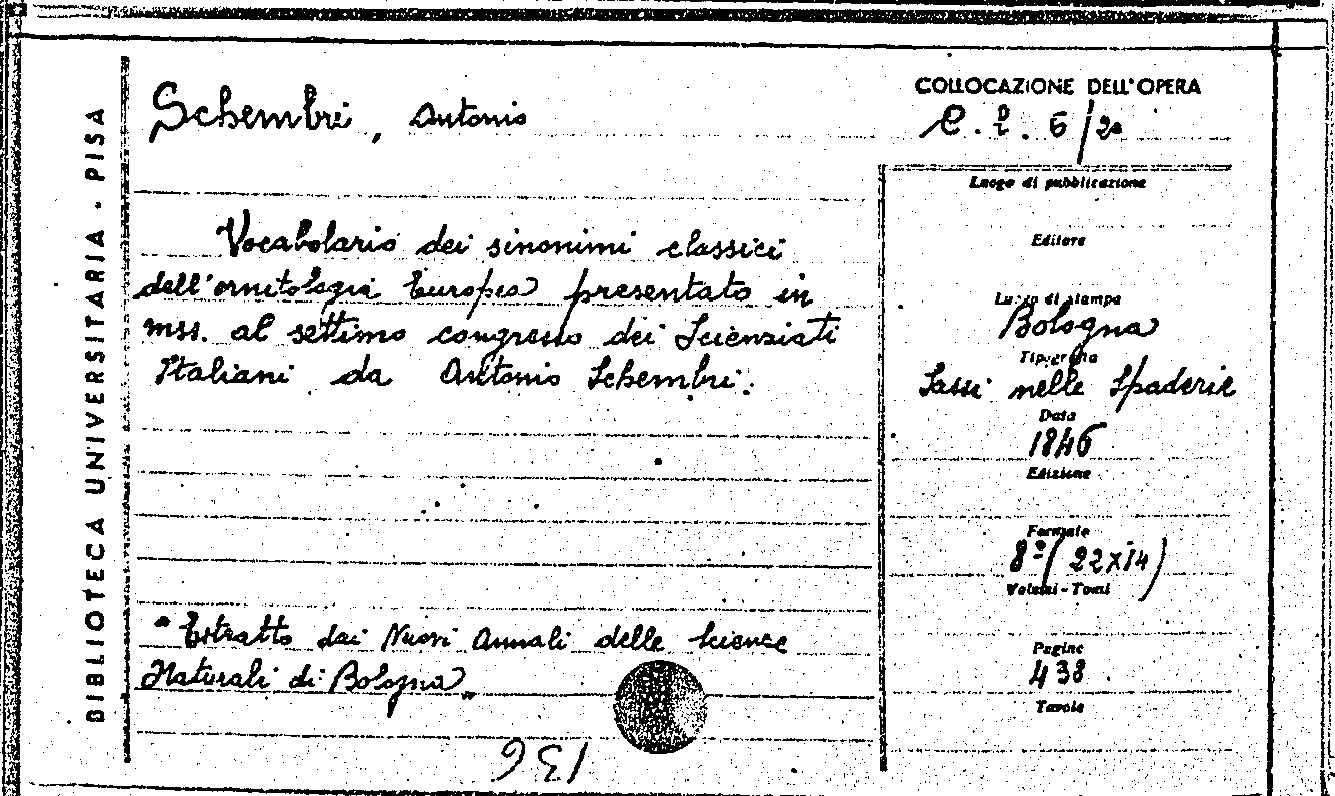 BIBLIOTECA UNIVERSITARIA - PISA
Schembri, Antonio
Vocabolario dei sinonimi classici
dell'ornitologia Europea presentato in
mss. al settimo congresso dei Scienziati
Italiani da Antonio Schembri.
"Estratto dai Nuovi Annali delle Scienze
Naturali di Bologna"
136
COLLOCAZIONE DELL'OPERA
6/20
Luogo di pubblicazione
Editore
Luogo di stampa
Bologna
Tipografia
Sassi nelle Spaderie
Data
1846
Edizione
Formato
8º (22x14)
Volumi - Tomi
Pagine
438
Tavole